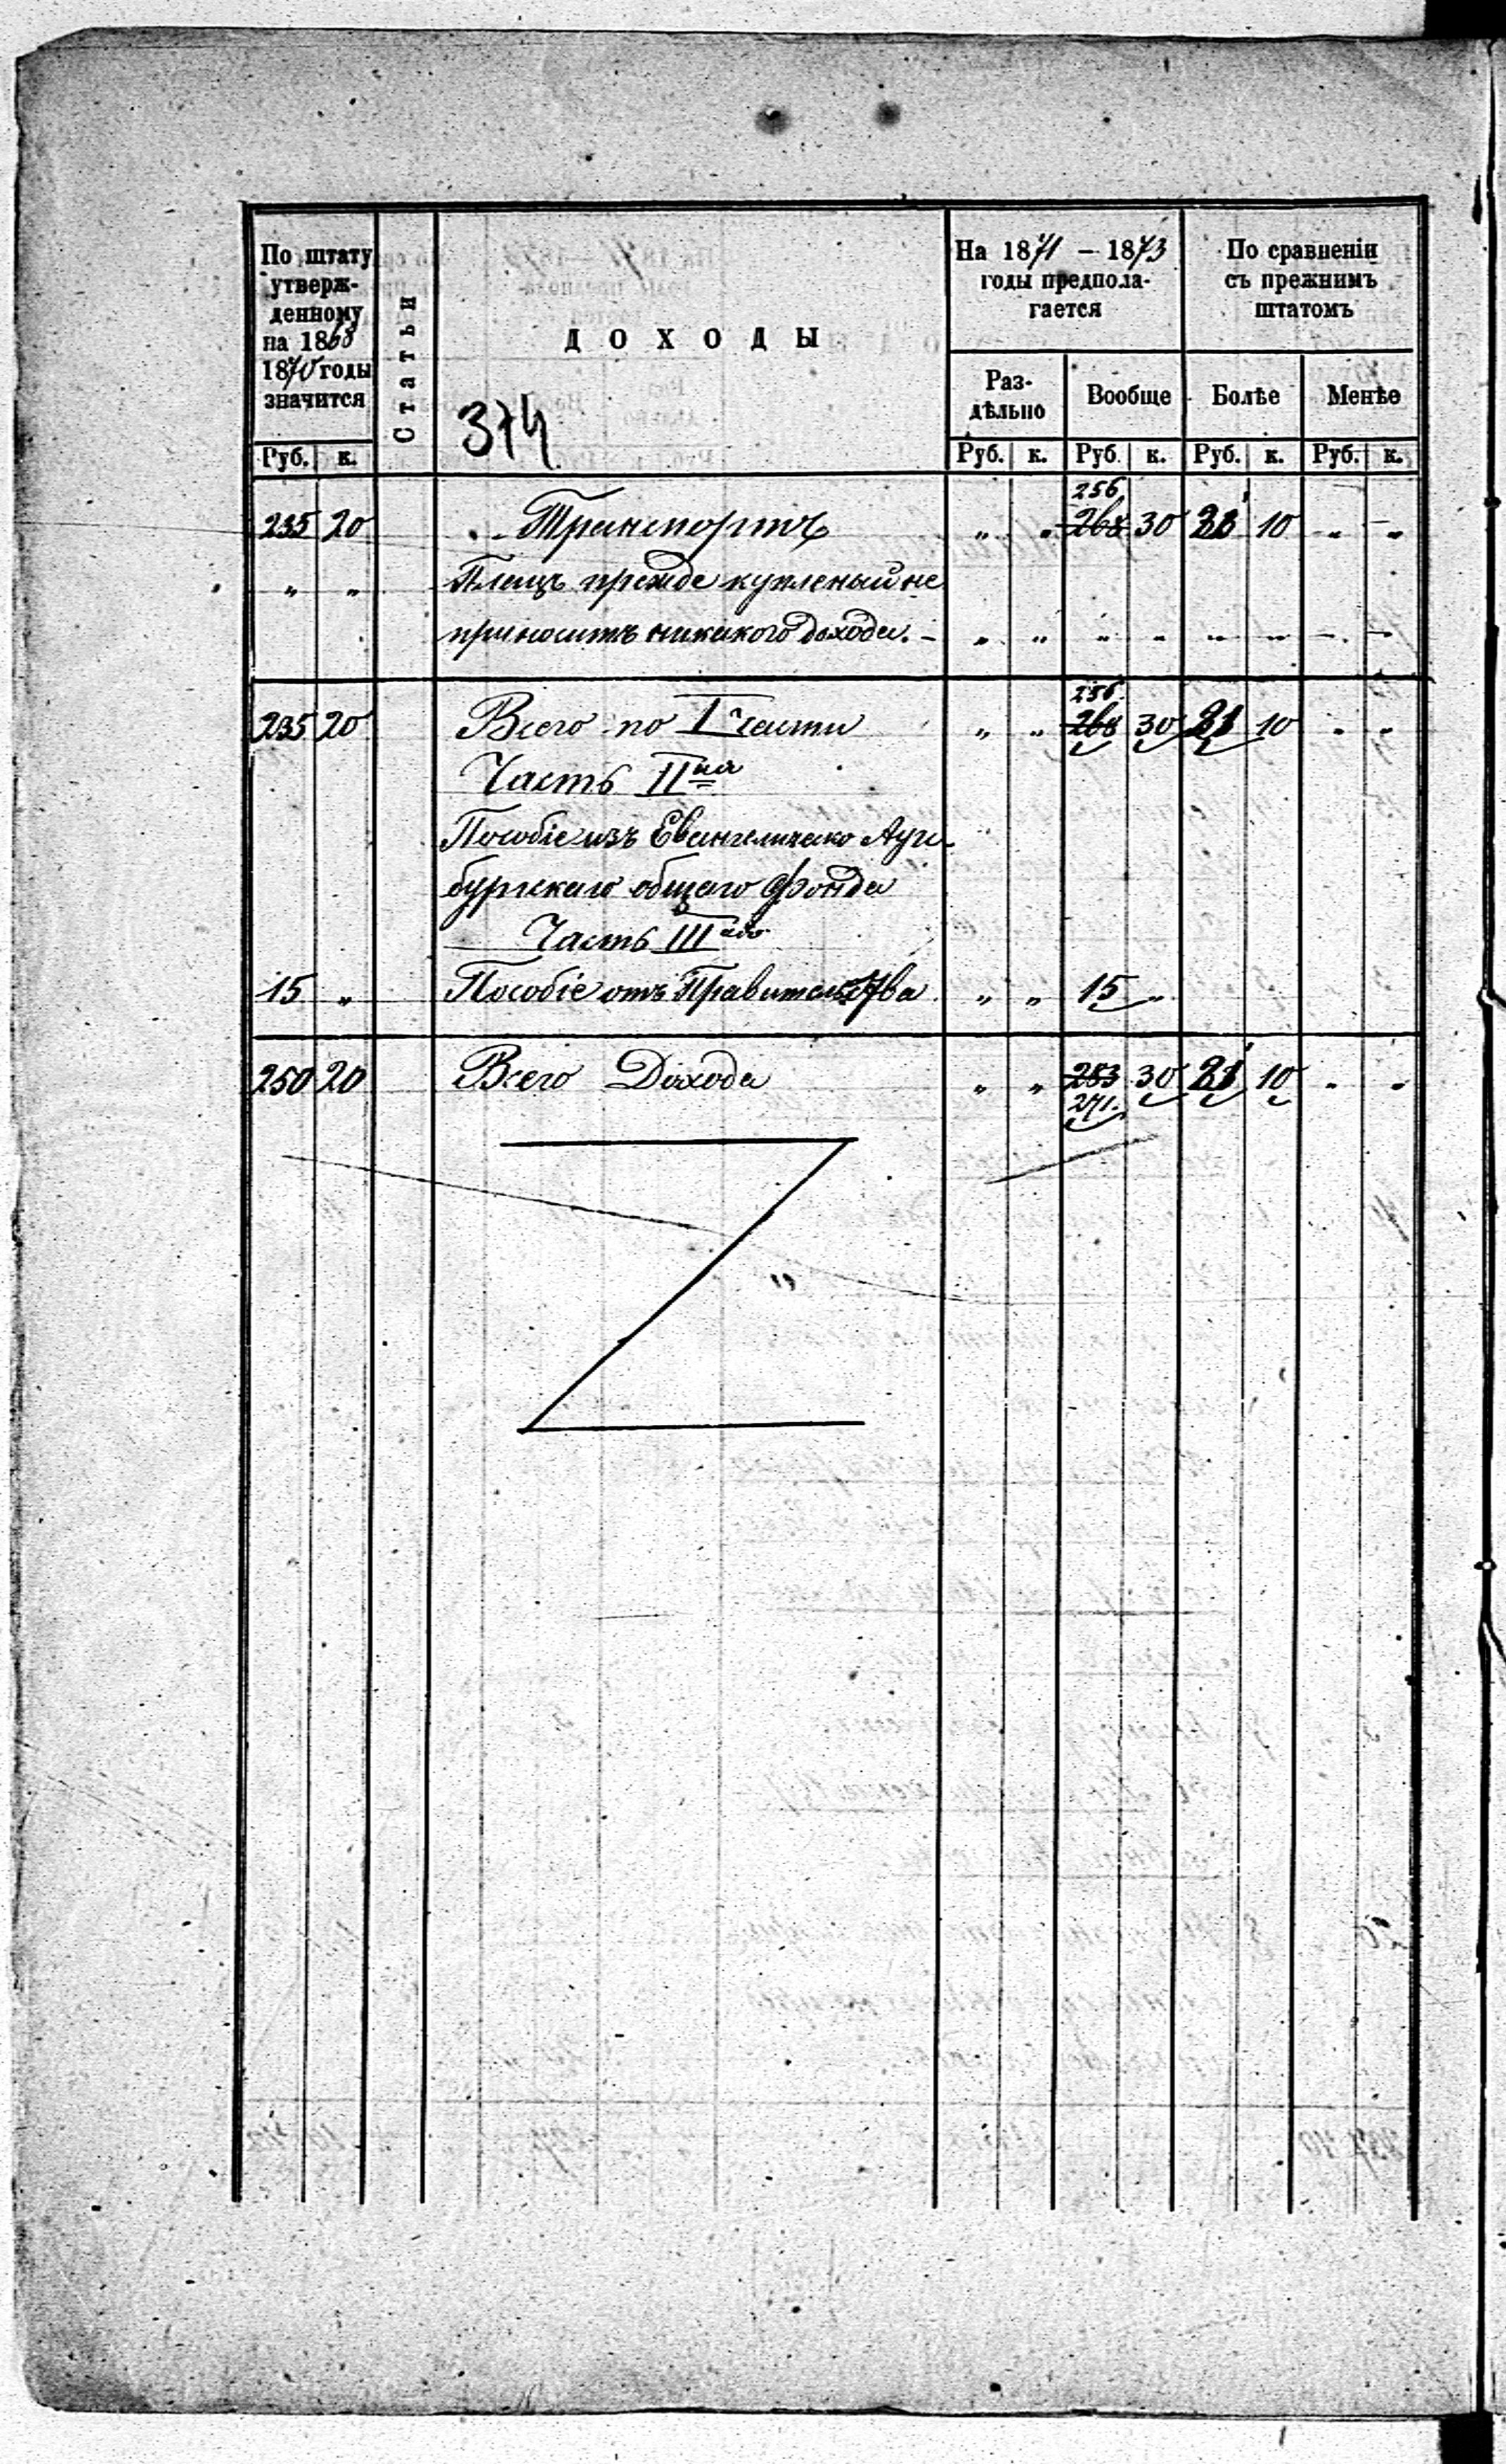 По штату утверж-денному на 1868 1870 годы значится
Статьи
ДОХОДЫ
374
На 1871 – 1873 годы предпола-гается
По сравненіи съ прежнимъ штатомъ
Раз-дѣльно
Вообще
Болѣе
Менѣе
Руб. к. Руб. к. Руб. к. Руб. к. Руб. к.
256
235 20 Транспортъ „ „ 268 30 21 10 „ „
„ „ Плацъ прежде купленый не
приноситъ никакого дохода. – „ „ „ „ „ „ „ „
256
235 20 Всего по I части „ „ 268 30 21 10 „ „
Часть II ая
Пособіе изъ Евангелическо Аугс-
бургскаго общаго фонда
Часть III
15 „ Пособіе отъ Правительства „ „ 15 „
250 20 Всего Дохода „ „ 283 30 21 10 „ „
271.